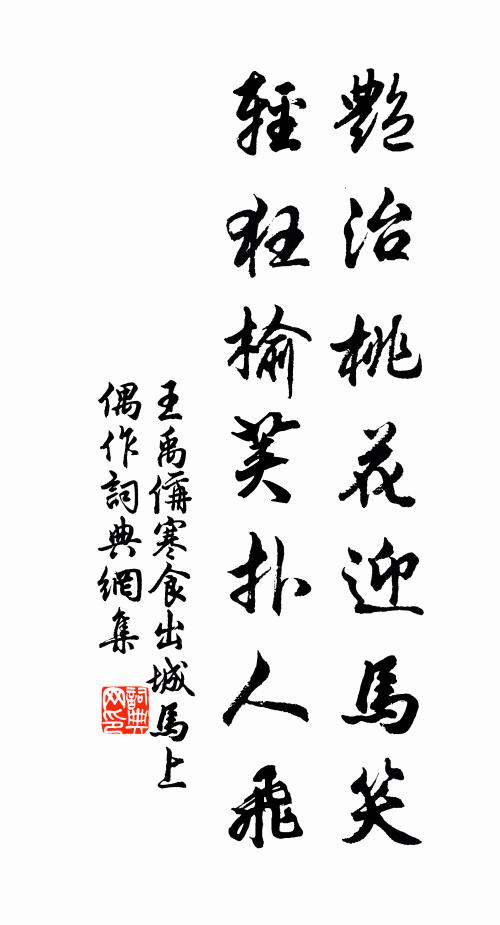 艷治桃花迎馬笑
輕狂榆荚扑人飛
王禹偁寒食出城馬上
偶作詞典網集
詞典网印